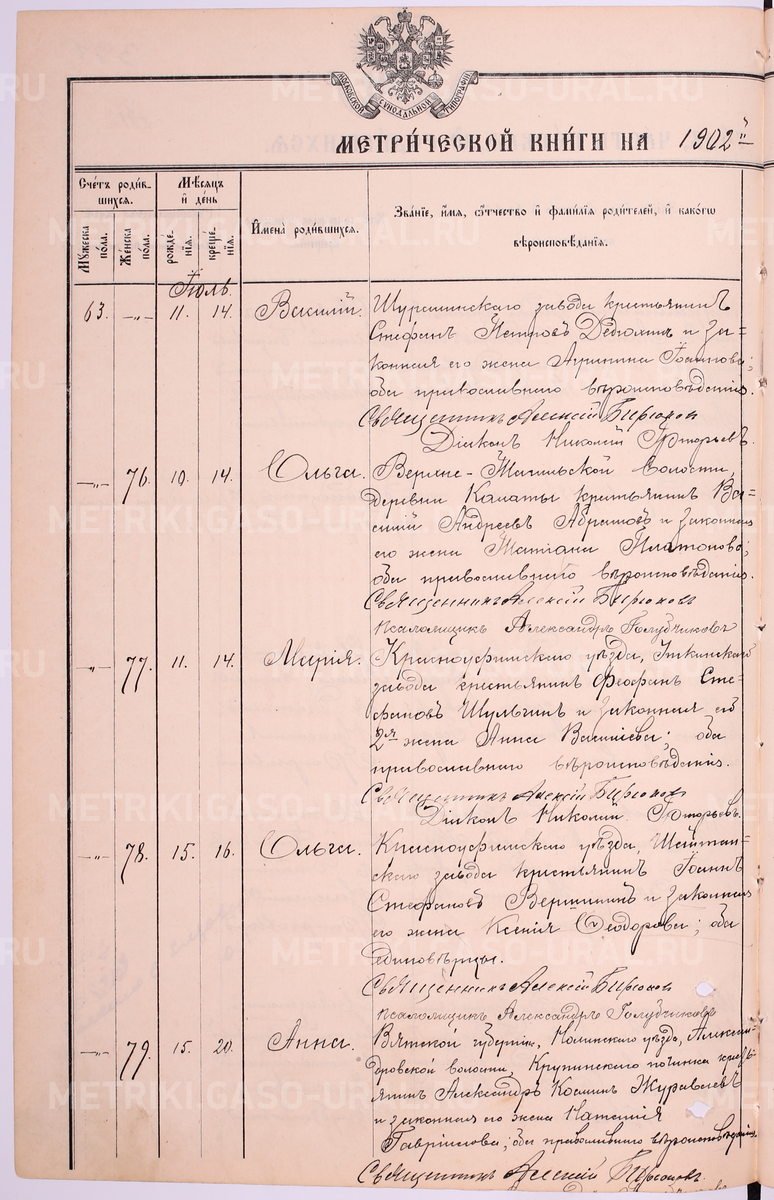 МОСКОВСКОЙ СѴНОДАЛЬНОЙ ТИПОГРАФІИ
МЕТРИ́ЧЕСКОЙ КНИ́ГИ НА 1902й
Счетъ роди́вшихсѧ.
Мꙋжеска по́ла.
Же́нска по́ла.
Мѣ́сѧцъ и҆ де́нь
рожде́нїѧ.
креще́нїѧ.
И҆мена̀ роди́вшихсѧ.
Зва́нїе, и҆́мѧ, ѻ҆́тчество и҆ фами́лїѧ роди́телей, и҆ како́гѡ
вѣроисповѣ́данїѧ.
Іюль.
63. —„— 11. 14. Василій. завода крестьянинъ
Стефанъ Петровъ и за=
конная его жена Агрипина Іоаннова;
оба православнаго вѣроисповѣданія.
Священникъ Алексій Бирюковъ
Діаконъ Николай Григорьевъ.
—„— 76. 10. 14. Ольга. Верхне-Тагильской волости,
деревни Калаты крестьянинъ Ва=
силій Андреевъ Абрамовъ и законная
его жена Татіана Платонова;
оба православнаго вѣроисповѣданія.
Священникъ Алексій Бирюковъ
Псаломщикъ Александръ Голубчиковъ
—„— 77. 11. 14. Марія. Красноуфимскаго уѣзда, Уткинскаго
завода крестьянинъ Феофанъ Сте=
фановъ Шульгинъ и законная его
2я жена Анна Васильева; оба
православнаго вѣроисповѣданія.
Священникъ Алексій Бирюковъ
Діаконъ Николай Григорьевъ.
—„— 78. 15. 16. Ольга. Красноуфимскаго уѣзда, Шайтан=
скаго завода крестьянинъ Іоаннъ
Стефановъ Вершининъ и законная
его жена Ксенія Ѳеодорова; оба
единовѣрцы.
Священникъ Алексій Бирюковъ
Псаломщикъ Александръ Голубчиковъ
—„— 79. 15. 20. Анна. Вятской губерніи, Нолинскаго уѣзда, Алексан=
дровской волости, Крупинскаго починка кресть=
янинъ Александръ Космин Журавлевъ
и законная его жена Наталія
Гавріилова; оба православнаго вѣроисповѣданія.
Священникъ Алексій Бирюковъ.
METRIKI.GASO-URAL.RU